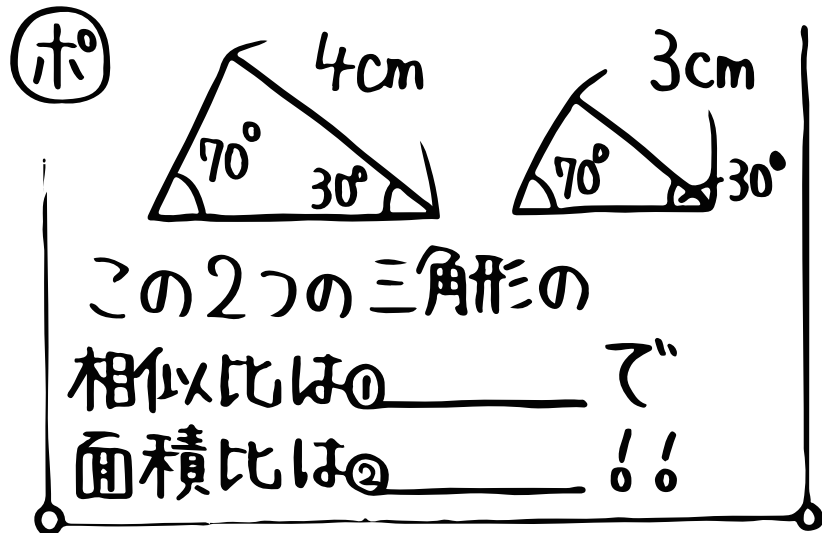 ポ
4cm 3cm
70° 30° 70° 30°
この2つの三角形の
相似比は①________で
面積比は②________!!